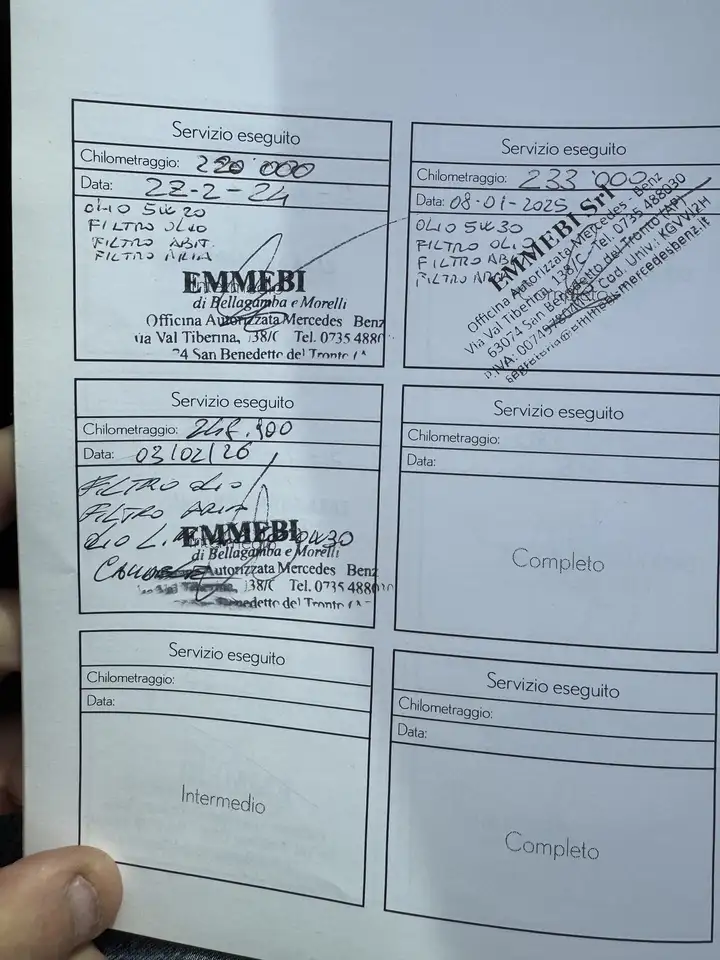 Servizio eseguito
Chilometraggio: 220'000
Data: 27-2-24
OLIO 5W30
FILTRO OLIO
FILTRO ABIT.
FILTRO ARIA
EMMEBI
di Bellagamba e Morelli
Officina Autorizzata Mercedes Benz
Via Val Tiberina, 138/C Tel. 0735 4880
74 San Benedetto del Tronto (A
Servizio eseguito
Chilometraggio: 233'000
Data: 08-01-2025
OLIO 5W30
FILTRO OLIO
FILTRO AB
FILTRO AR
EMMEBI Srl
Officina Autorizzata Mercedes - Benz
Via Val Tiberina, 138/C - Tel. 0735 488030
63074 San Benedetto del Tronto (AP)
Cod. Univ.: KGVVJ2H
mercedesbenz.it
Servizio eseguito
Chilometraggio: 248.900
Data: 03/02/26
FILTRO OLIO
FILTRO ARIA
OLIO 0W30
EMMEBI
di Bellagamba e Morelli
Autorizzata Mercedes Benz
138/C Tel. 0735 4880
nedetto del Tronto (A
Servizio eseguito
Chilometraggio:
Data:
Completo
Servizio eseguito
Chilometraggio:
Data:
Intermedio
Servizio eseguito
Chilometraggio:
Data:
Completo